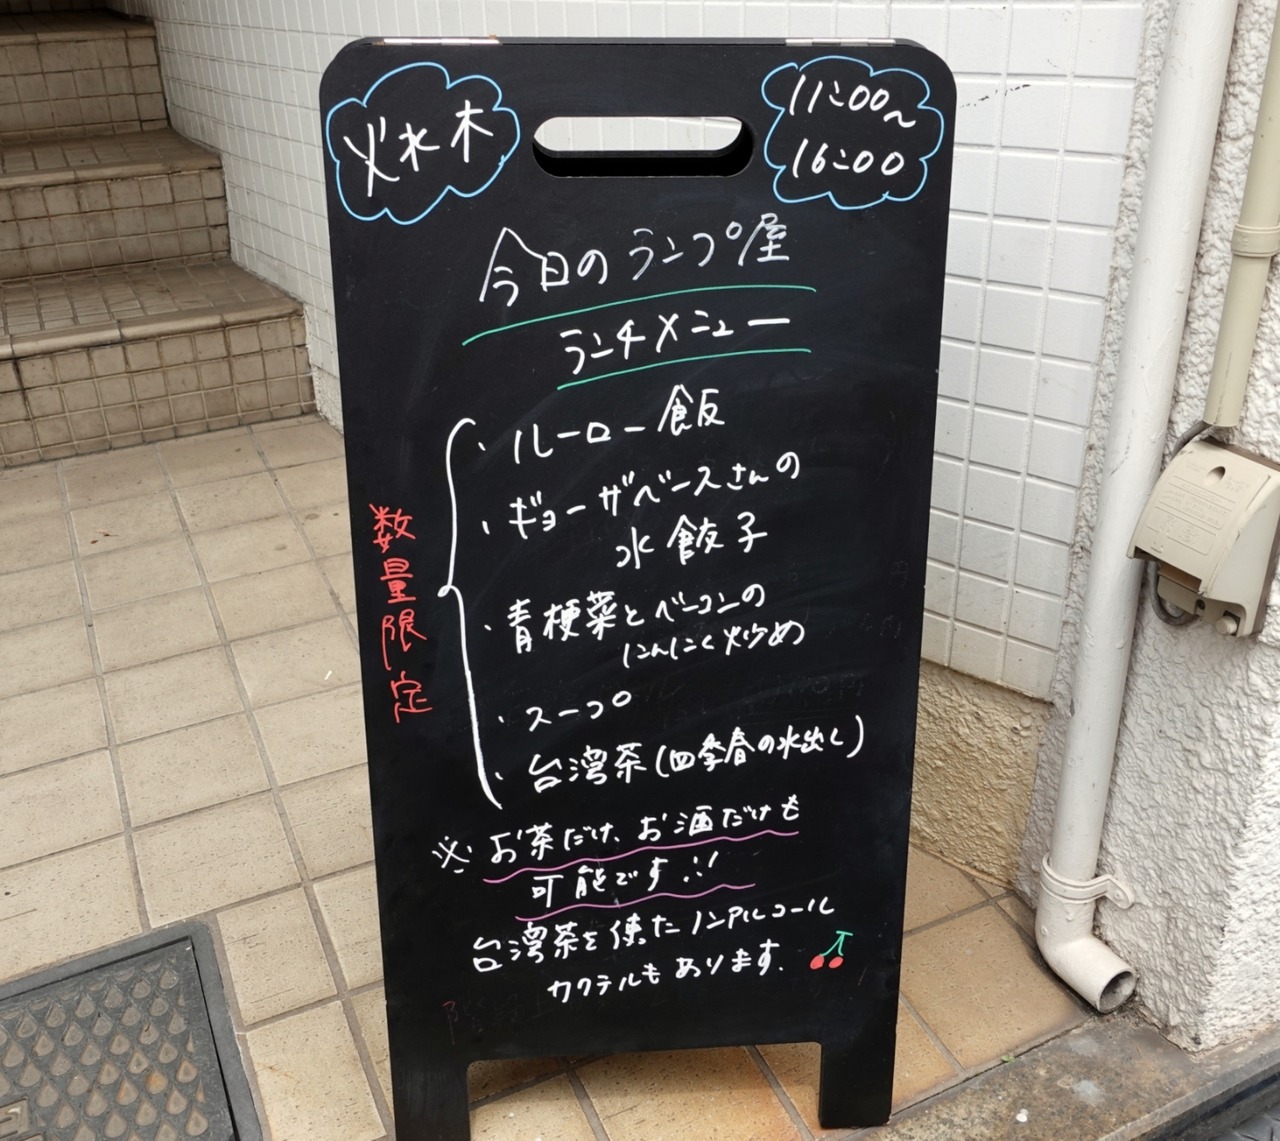 火水木
11:00~
16:00
今日のランプ屋
ランチメニュー
・ルーロー飯
・ギョーザベースさんの
水餃子
・青梗菜とベーコンの
にんにく炒め
・スープ
・台湾茶(四季春の水出し)
数量限定
※お茶だけ、お酒だけも
可能です!!
台湾茶を使たノンアルコール
カクテルもあります.